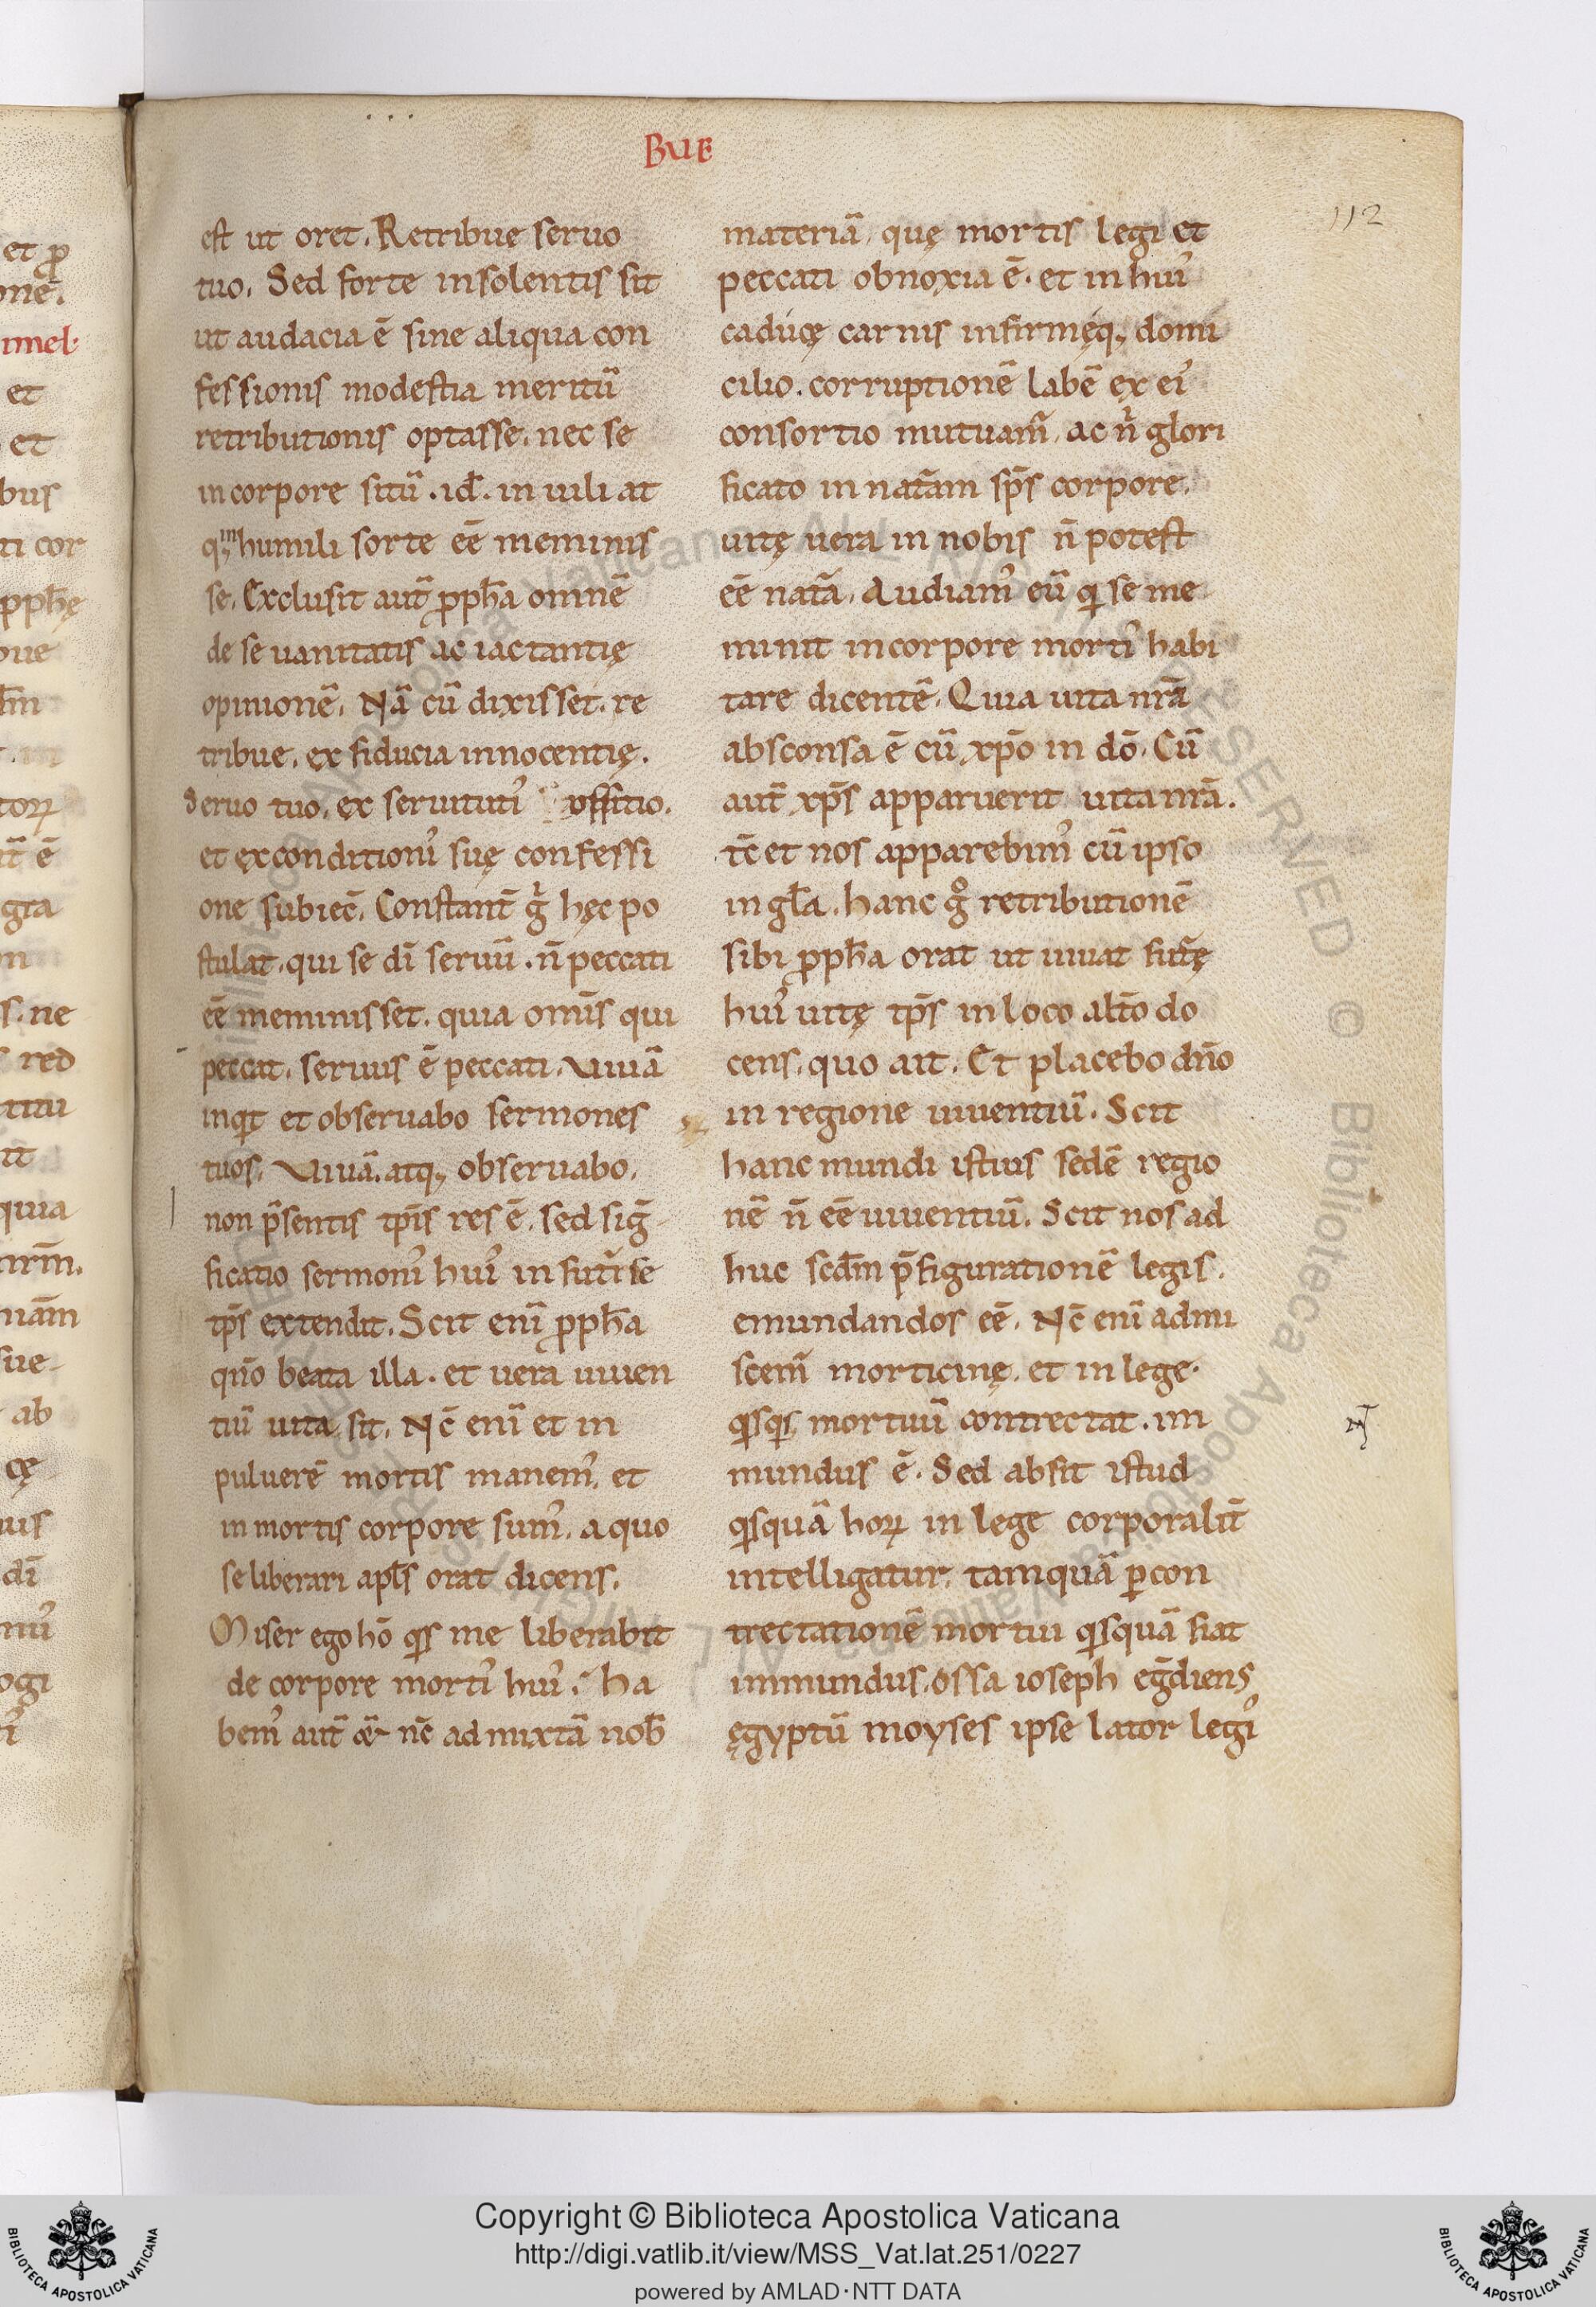 BUE
112
est ut oret. Retribue seruo
tuo. Sed forte insolentis sit
ut audacia ē sine aliqua con
fessionis modestia meritū
retributionis optasse. nec se
in corpore sitū. id̄. in uili at
q; humili sorte eē meminis
se. Exclusit aut̄ ꝓph̄a omnē
de se uanitatis ac iactantię
opinionē. Nā cū dixisset. re
tribue. ex fiducia innocentię.
Seruo tuo. ex seruituti᾿ offitio.
et ex conditioni᾿ suę confessi
one subiec̄. Constant̄ g̊ hęc po
stulat. qui se dī seruū. n̄ peccati
eē meminisset. quia omīs qui
peccat. seruus ē peccati. Viuā
inqͥt et obseruabo sermones
tuos. Viuā. atq; obseruabo.
non p̄sentis tp̄is res ē. sed siḡ
ficatio sermoni᾿ hui᾿ in futuͬ se
tp̄s extendit. Scit enī ꝓph̄a
qn̄o beata illa. et uera uiuen
tiū uita sit. Nc̄ enī et in
puluerē mortis manem᾿. et
in mortis corpore sum᾿. a quo
se liberari apl̄s orat dicens.
Miser ego hō qͥs me liberabit
de corpore morti᾿ hui᾿. Ha
bem᾿ aut̄ & nc̄ admixtā nob̄
materiā, quę mortis legi et
peccati obnoxia ē. et in hui᾿
cadúcę carnis infirmęq; domi
cilio. corruptionē labē ex ei᾿
consortio mutuam᾿. ac n̊ glori
ficato in nat̄am sp̄s corpore.
uitę uera in nobis n̄ potest
eē nat̄a. Audiam᾿ eū qͥ se me
minit in corpore morti᾿ habi
tare dicentē. Quia uita nr̄a
absconsa ē cū xp̄o in dō. Cū
aut̄ xp̄s apparuerit uita nr̄a.
tc̄ et nos apparebim᾿ cū ipso
in gl̄a. hanc g̊ retributionē
sibi ꝓph̄a orat ut uiuat fut̄ę
hui᾿ uitę tp̄s in loco alt̄o do
cens. quo ait. Et placebo dn̄o
in regione uiuentiū. Scit
hanc mundi istius sedē regio
nē n̄ eē uiuentiū. Scit nos ad
huc scd̄m p̄figurationē legis.
emundandos eē. Nc̄ enī admi
scem᾿ morticinę. et in lege.
qͥsqͥs mortuū contrectat. im
mundus ē. Sed absit istud
qͥsquā hoꝝ in lege corporalit̄
intelligatur. tamquā ꝑ con
trectationē mortui qͥsquā fiat
immundus. ossa ioseph eg̊diens
ęgyptū moyses ipse lator legi᾿
Copyright © Biblioteca Apostolica Vaticana
http://digi.vatlib.it/view/MSS_Vat.lat.251/0227
powered by AMLAD·NTT DATA